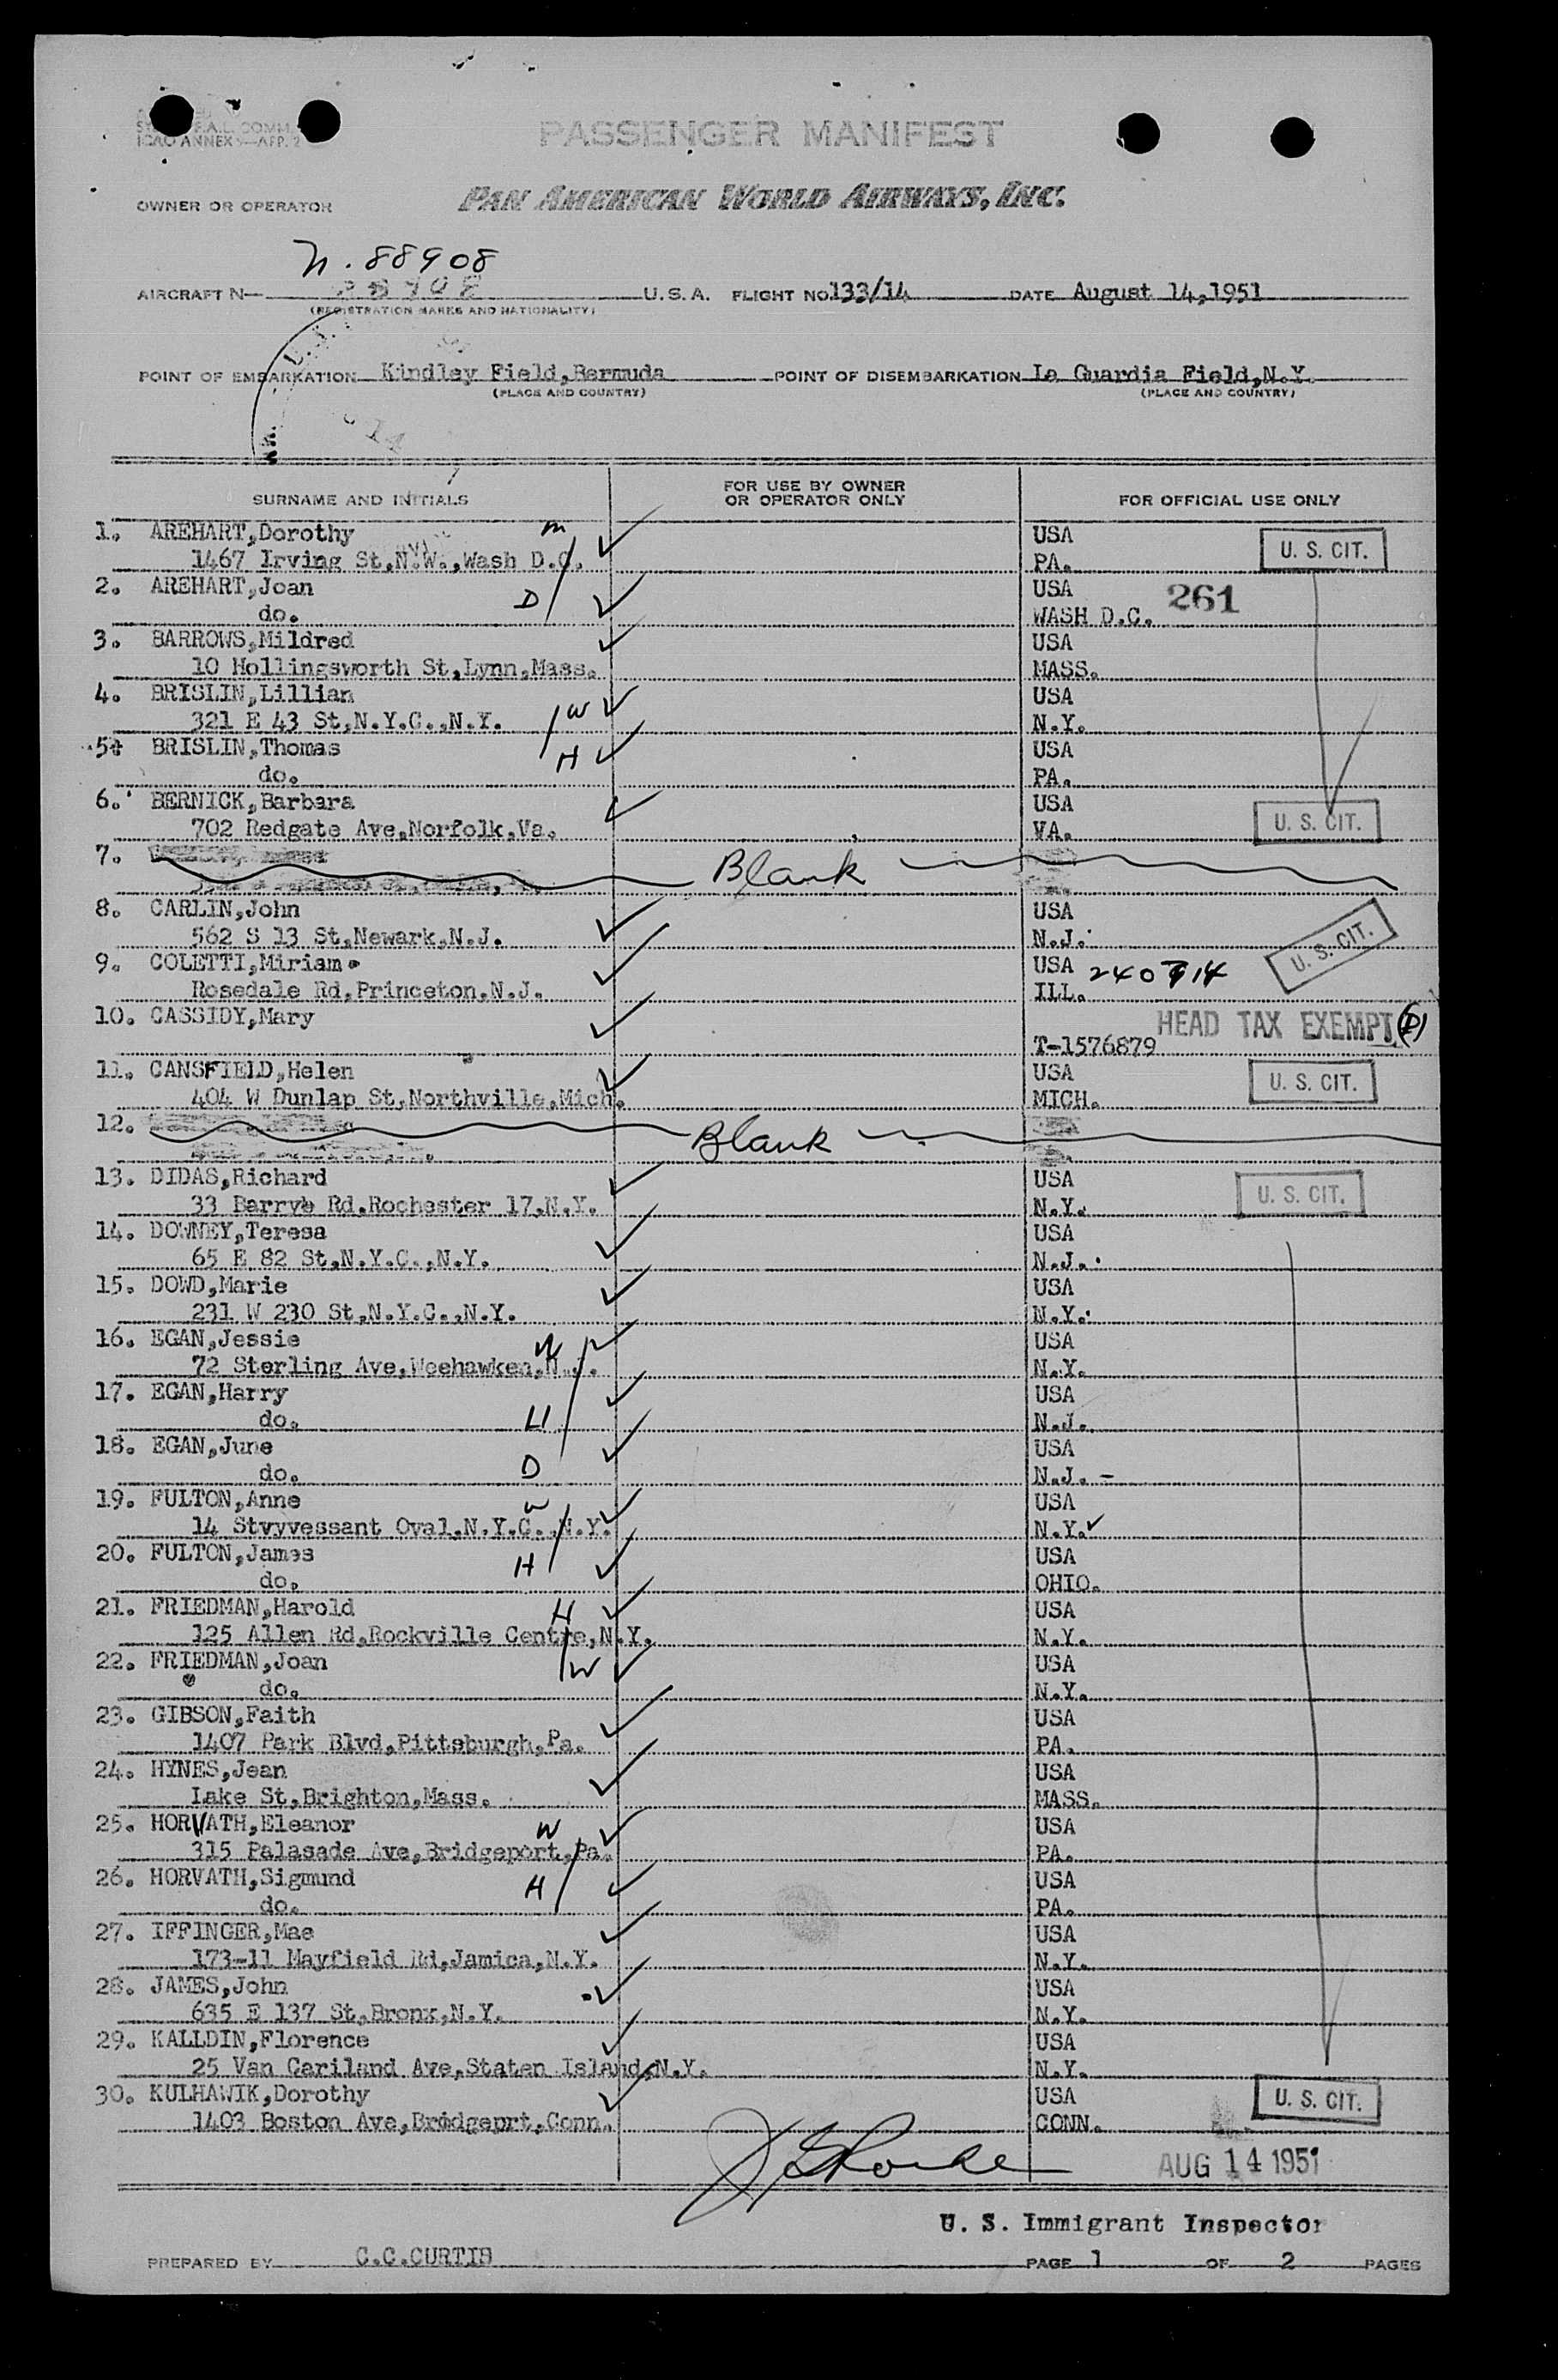 F.A.L. COMM.
ICAO ANNEX 9—APP. 2
PASSENGER MANIFEST
OWNER OR OPERATOR PAN AMERICAN WORLD AIRWAYS, INC.
N. 88908
AIRCRAFT N— U.S.A. FLIGHT NO 133/14 DATE August 14,1951
(REGISTRATION MARKS AND NATIONALITY)
POINT OF EMBARKATION Kindley Field,Bermuda POINT OF DISEMBARKATION La Guardia Field,N.Y.
(PLACE AND COUNTRY) (PLACE AND COUNTRY)
SURNAME AND INITIALS FOR USE BY OWNER OR OPERATOR ONLY FOR OFFICIAL USE ONLY
1. AREHART,Dorothy M ✓ USA U. S. CIT.
1467 Irving St,N.W.,Wash D.C. PA.
2. AREHART,Joan D ✓ USA 261
do. WASH D.C.
3. BARROWS,Mildred ✓ USA
10 Hollingsworth St,Lynn,Mass. MASS.
4. BRISLIN,Lillian W ✓ USA
321 E 43 St,N.Y.C.,N.Y. N.Y.
5. BRISLIN,Thomas H ✓ USA
do. PA.
6. BERNICK,Barbara ✓ USA
702 Redgate Ave,Norfolk,Va. VA. U. S. CIT.
7. Blank
8. CARLIN,John ✓ USA
562 S 13 St,Newark,N.J. N.J. U. S. CIT.
9. COLETTI,Miriam ✓ USA
Rosedale Rd,Princeton,N.J. ILL.
10. CASSIDY,Mary ✓ HEAD TAX EXEMPT
T-1576879
11. CANSFIELD,Helen ✓ USA U. S. CIT.
404 W Dunlap St,Northville,Mich. MICH.
12. Blank
13. DIDAS,Richard ✓ USA U. S. CIT.
33 Barrye Rd,Rochester 17,N.Y. N.Y.
14. DOWNEY,Teresa ✓ USA
65 E 82 St,N.Y.C.,N.Y. N.J.
15. DOWD,Marie ✓ USA
231 W 230 St,N.Y.C.,N.Y. N.Y.
16. EGAN,Jessie W ✓ USA
72 Sterling Ave,Weehawken,N.J. N.Y.
17. EGAN,Harry H ✓ USA
do. N.J.
18. EGAN,June D ✓ USA
do. N.J. -
19. FULTON,Anne W ✓ USA
14 Stvyvessant Oval,N.Y.C.,N.Y. N.Y. ✓
20. FULTON,James H ✓ USA
do. OHIO.
21. FRIEDMAN,Harold H ✓ USA
125 Allen Rd,Rockville Centre,N.Y. N.Y.
22. FRIEDMAN,Joan W ✓ USA
do. N.Y.
23. GIBSON,Faith ✓ USA
1407 Park Blvd,Pittsburgh,Pa. PA.
24. HYNES,Jean ✓ USA
Lake St,Brighton,Mass. MASS.
25. HORVATH,Eleanor W ✓ USA
315 Palasade Ave,Bridgeport,Pa. PA.
26. HORVATH,Sigmund H ✓ USA
do. PA.
27. IFFINGER,Mae ✓ USA
173-11 Mayfield Rd,Jamica,N.Y. N.Y.
28. JAMES,John ✓ USA
635 E 137 St,Bronx,N.Y. N.Y.
29. KALLDIN,Florence ✓ USA
25 Van Cariland Ave,Staten Island,N.Y. N.Y.
30. KULHAWIK,Dorothy ✓ USA U. S. CIT.
1403 Boston Ave,Bridgeprt,Conn. CONN.
AUG 14 1951
U. S. Immigrant Inspector
PREPARED BY C.C.CURTIS PAGE 1 OF 2 PAGES